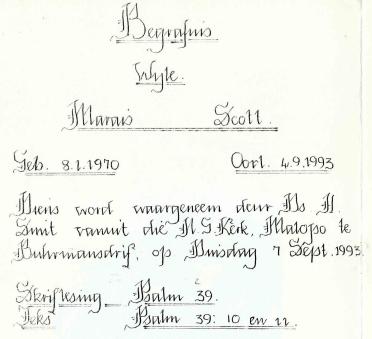 Begrafnis
Wyle.
Marais Scott.
Geb. 8.1.1970 Oorl. 4.9.1993
Diens word waargeneem deur Ds H.
Smit vanuit die N.G.Kerk, Matopo te
Buhrmansdrif, op Dinsdag 7 Sept. 1993.
Skriflesing Psalm 39.
Teks Psalm 39: 10 en 11.